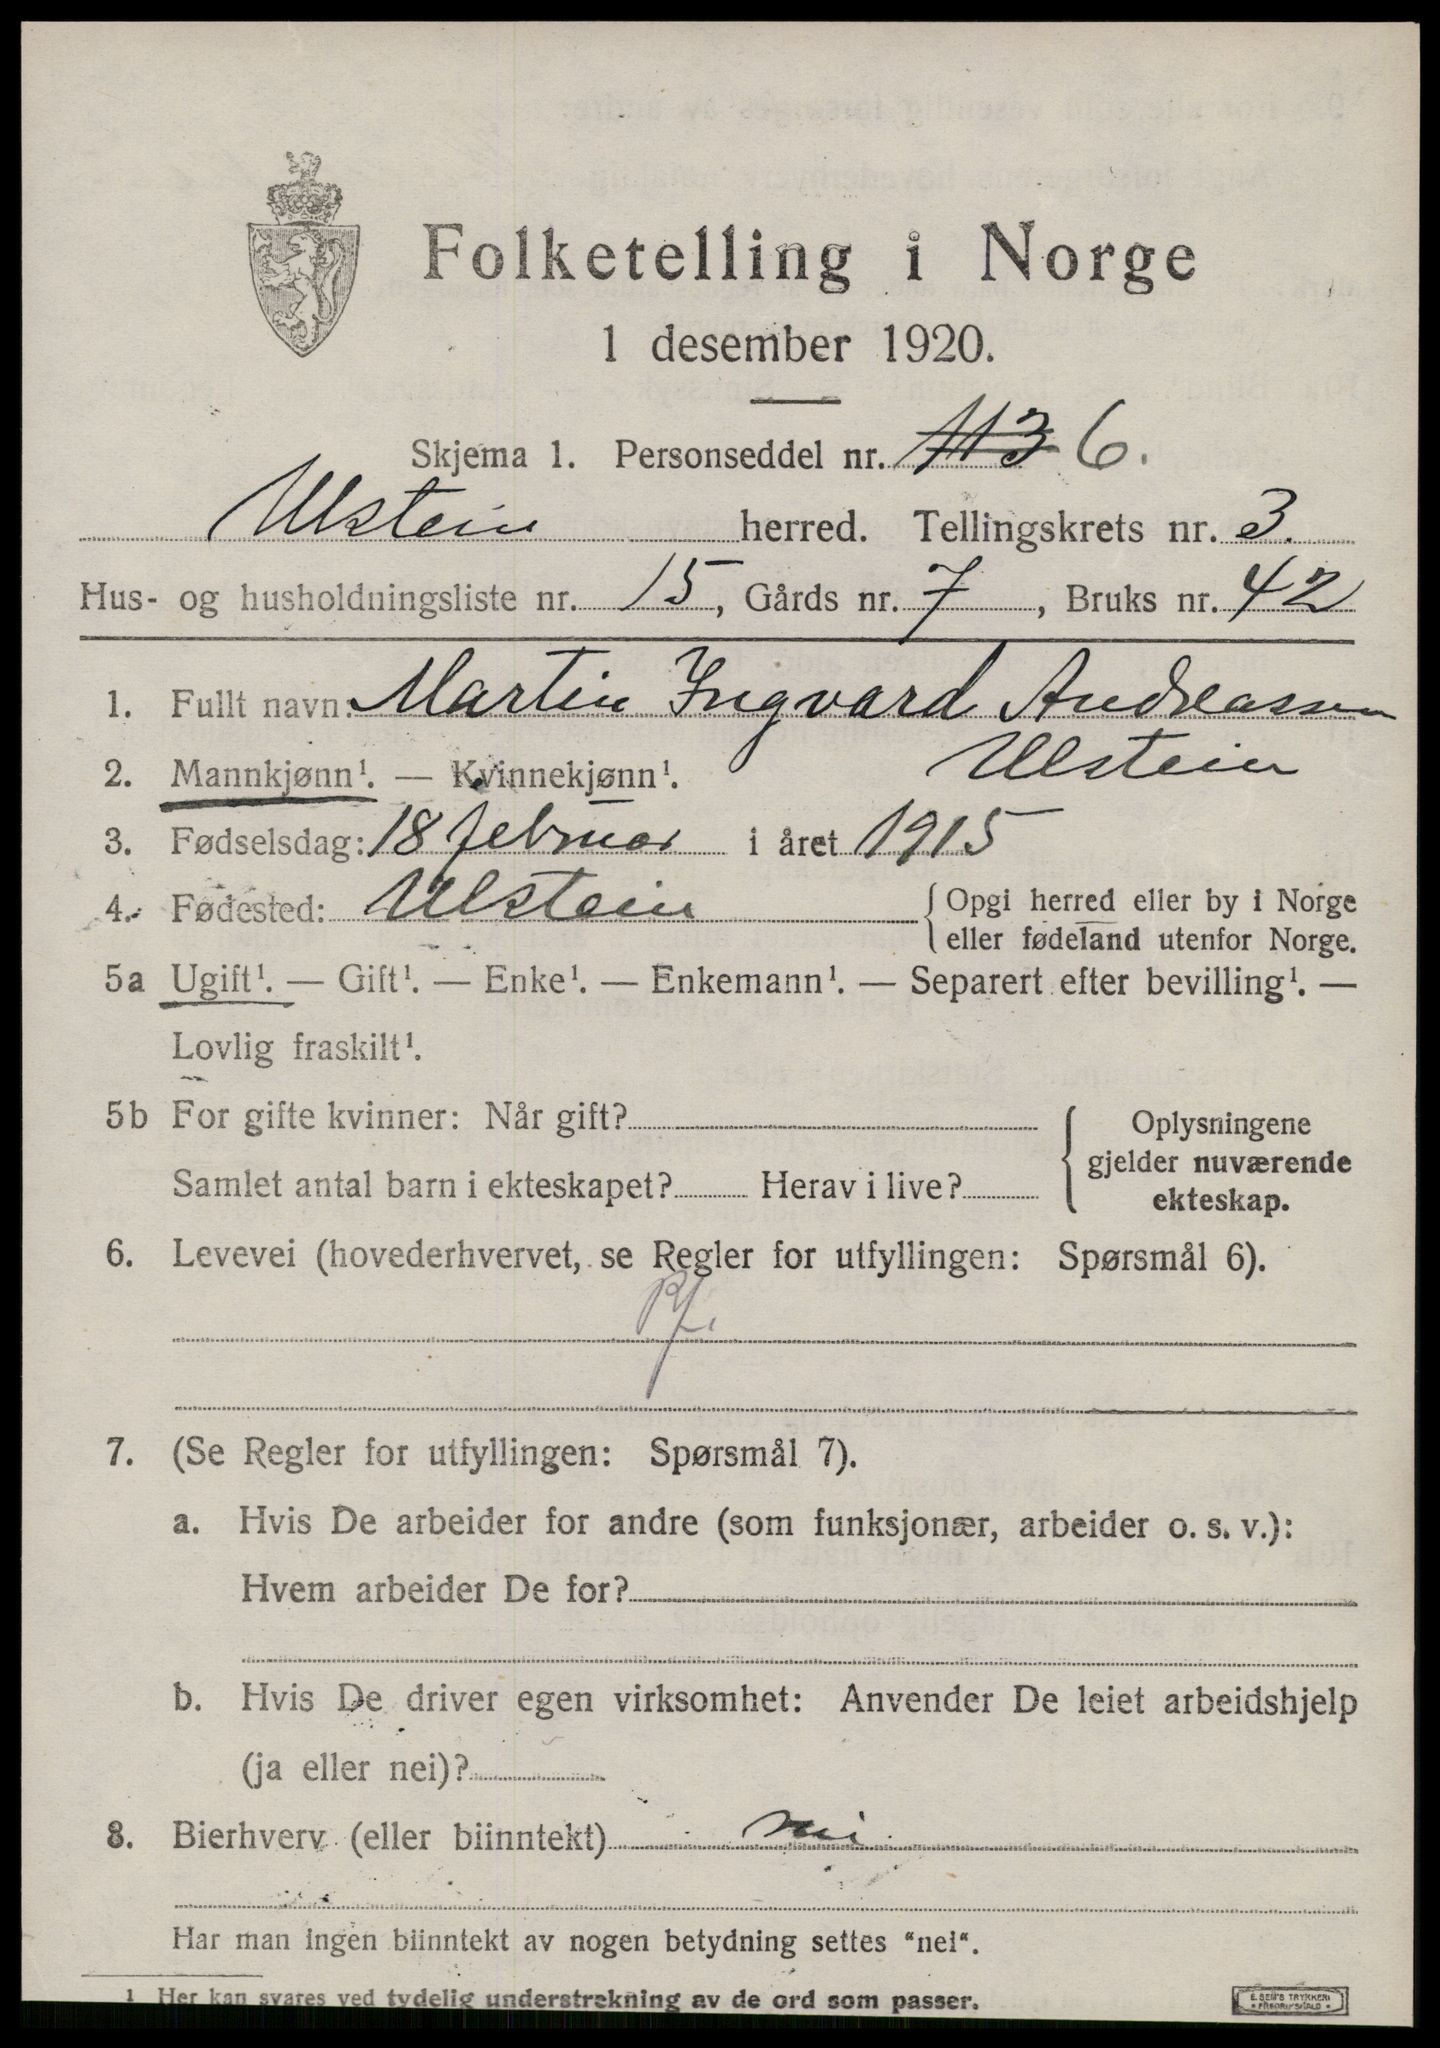 Folketelling i Norge
1 desember 1920.
Skjema 1. Personseddel nr. 113 6.
Ulstein herred. Tellingskrets nr. 3.
Hus- og husholdningsliste nr. 15, Gårds nr. 7, Bruks nr. 42
1. Fullt navn: Martin Ingvard Andreassen
Ulstein
2. Mannkjønn¹. — Kvinnekjønn¹.
3. Fødselsdag: 18 februar i året 1915
4. Fødested: Ulstein
{ Opgi herred eller by i Norge
eller fødeland utenfor Norge.
5a Ugift¹. — Gift¹. — Enke¹. — Enkemann¹. — Separert efter bevilling¹. —
Lovlig fraskilt¹.
5b For gifte kvinner: Når gift?
Samlet antal barn i ekteskapet? Herav i live?
{ Oplysningene
gjelder nuværende
ekteskap.
6. Levevei (hovederhvervet, se Regler for utfyllingen: Spørsmål 6).
7. (Se Regler for utfyllingen: Spørsmål 7).
a. Hvis De arbeider for andre (som funksjonær, arbeider o. s. v.):
Hvem arbeider De for?
b. Hvis De driver egen virksomhet: Anvender De leiet arbeidshjelp
(ja eller nei)?
8. Bierhverv (eller biinntekt) nei
Har man ingen biinntekt av nogen betydning settes "nei".
1 Her kan svares ved tydelig understrekning av de ord som passer.
E. SEM'S TRYKKERI
FREDRIKSHALD